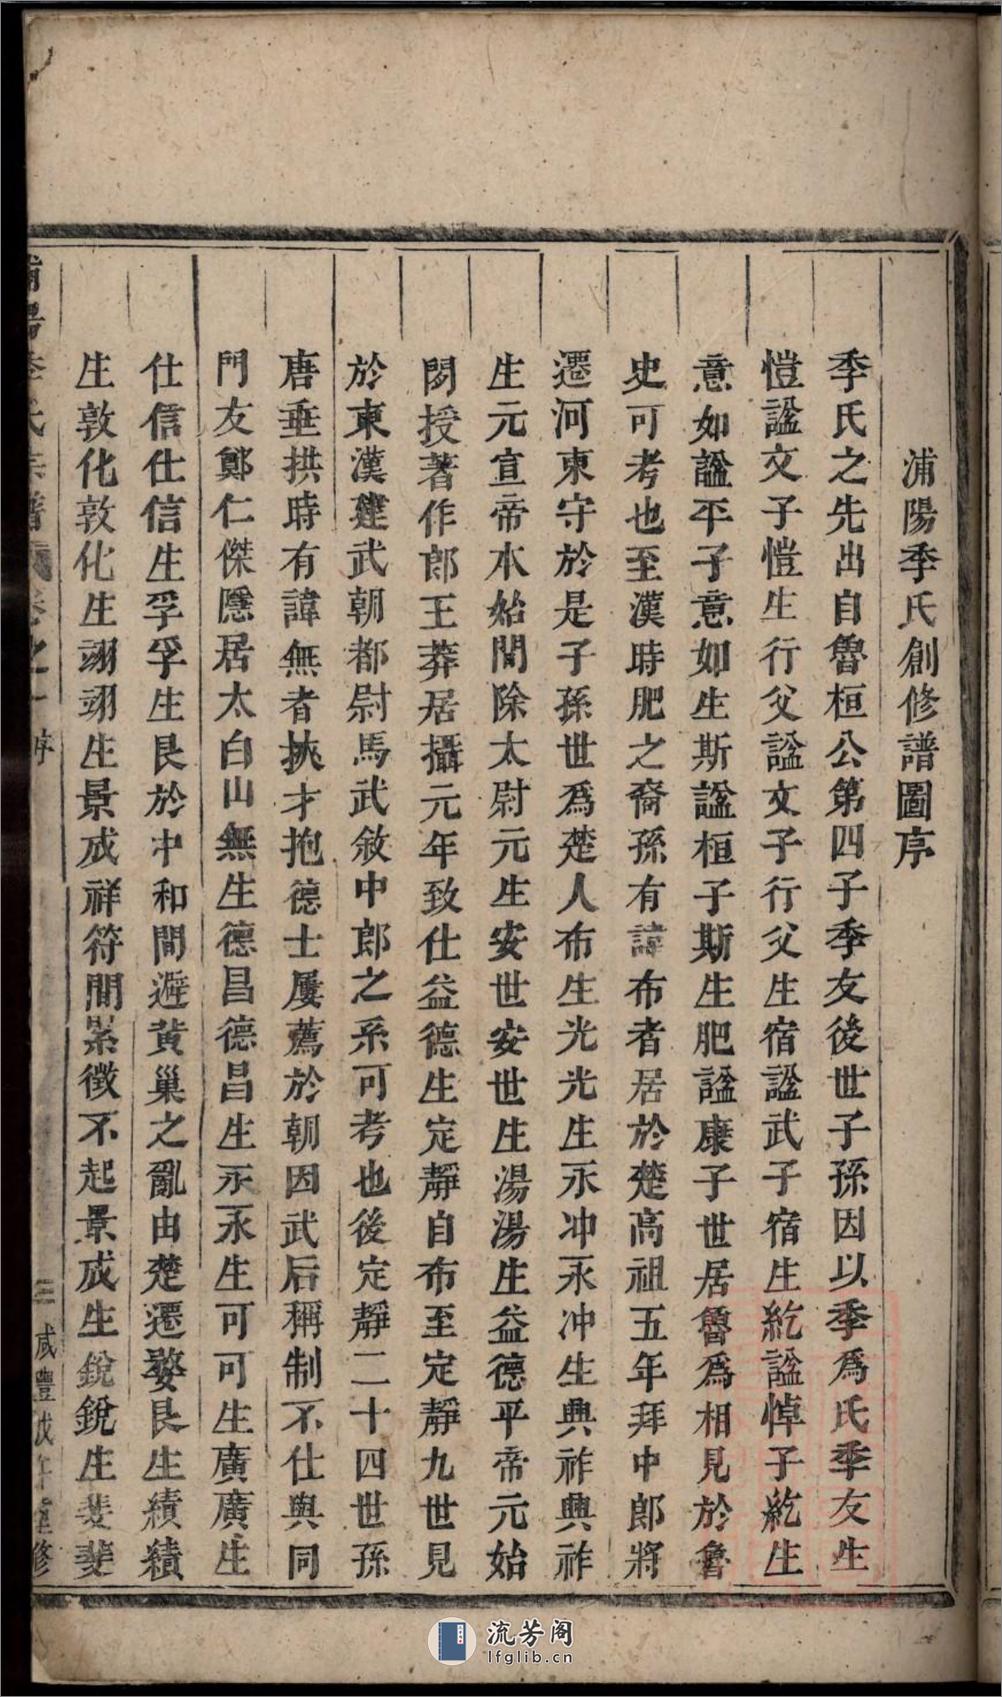 浦陽季氏創修譜圖序
季氏之先出自魯桓公第四子季友後世子孫因以季爲氏季友生
愷諡文子愷生行父諡文子行父生宿諡武子宿生紇諡悼子紇生
意如諡平子意如生斯諡桓子斯生肥諡康子世居魯爲相見於魯
史可考也至漢時肥之裔孫有諱布者居於楚高祖五年拜中郎將
遷河東守於是子孫世爲楚人布生光光生永冲永冲生興祚興祚
生元宣帝本始間除太尉元生安世安世生湯湯生益德平帝元始
間授著作郎王莽居攝元年致仕益德生定靜自布至定靜九世見
於東漢建武朝都尉馬武敘中郎之系可考也後定靜二十四世孫
唐垂拱時有諱無者挾才抱德士屢薦於朝因武后稱制不仕與同
門友鄭仁傑隱居太白山無生德昌德昌生永永生可可生廣廣生
仕信仕信生孚孚生艮於中和間避黃巢之亂由楚遷婺艮生績績
生敦化敦化生翊翊生景成祥符間累徵不起景成生銳銳生斐斐
浦陽季氏宗譜 卷之一 序 三 咸豐戊午重修
流芳阁
lfglib.cn